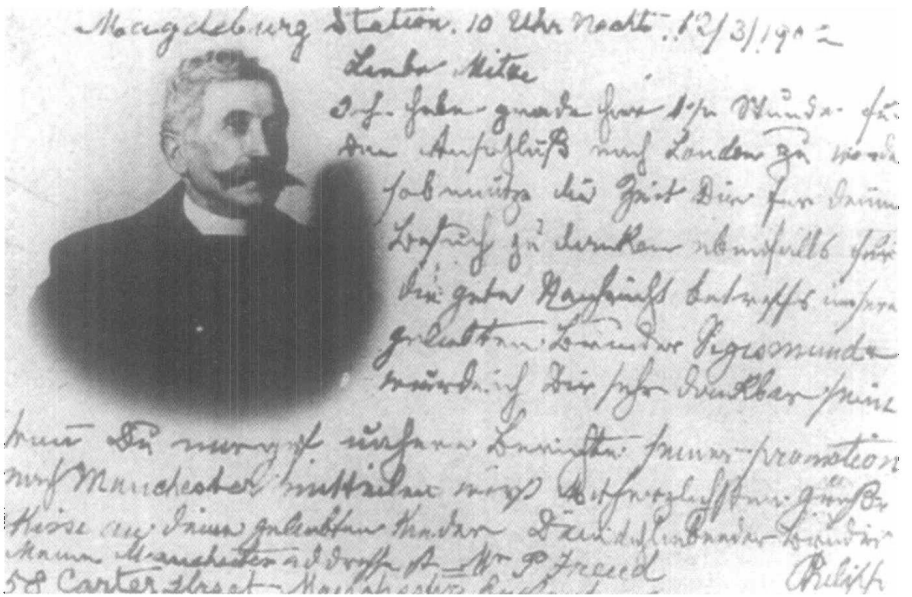 Magdeburg Station. 10 Uhr Nachts. 12/3/1902
Liebe Mitzi
Ich habe grade hier 1½ Stunde für
den Anschluß nach London zu
die Zeit Dir für Deinen
Besuch zu danken ebenfalls für
die gute Nachricht betreffs unseres
geliebten Bruder Sigismunda
würde ich Dir sehr dankbar sein
wenn Du mir nähere Berichte seiner promotion
nach Manchester mittheilen
Küsse an Deine geliebten Kinder Dein Dich liebender Bruder
Meine Manchester addresse ist – Mr P Freud
58 Carter Street Manchester
Philipp